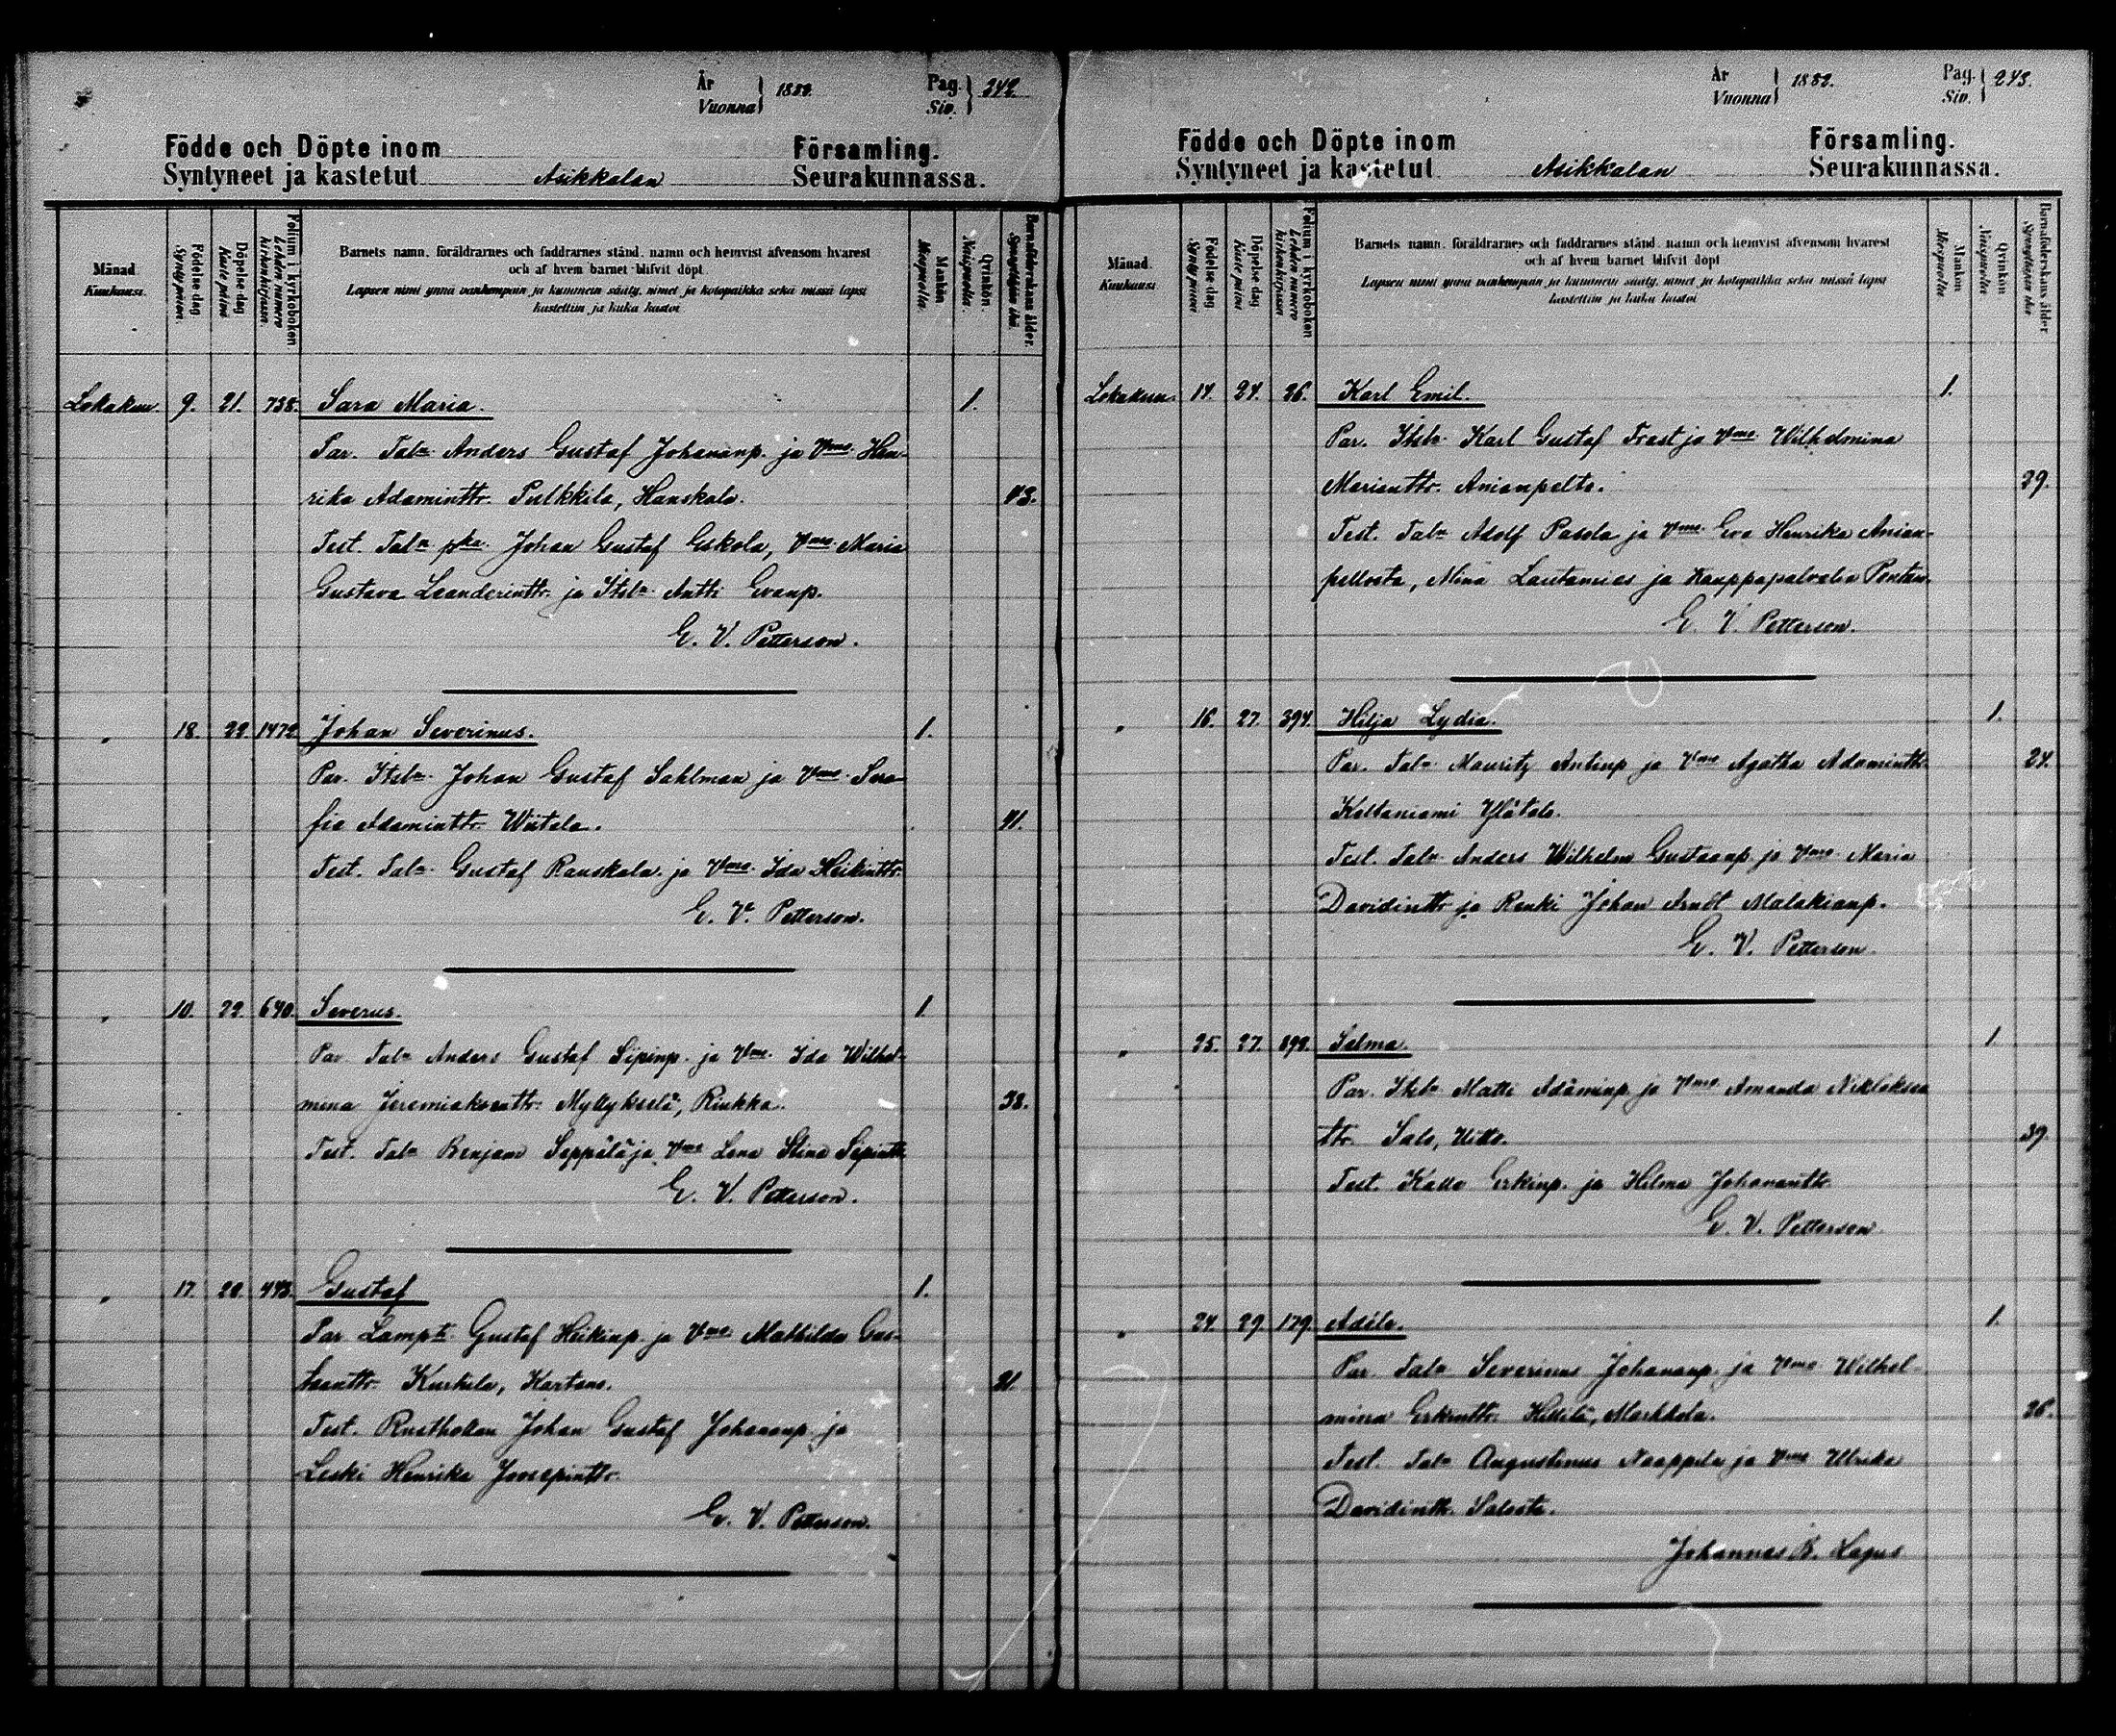 År
Vuonna } 1882.
Pag.
Siv. } 242.
Födde och Döpte inom
Syntyneet ja kastetut Asikkalan
Församling.
Seurakunnassa.
Månad.
Kuukausi.
Födelse dag
Syntypäivä.
Döpelse dag
Kastepäivä
Folium i kyrkoboken
Lehden numero kirkonkirjassa.
Barnets namn, föräldrarnes och faddrarnes stånd, namn och hemvist äfvensom hvarest
och af hvem barnet blifvit döpt.
Lapsen nimi ynnä vanhempain ja kummein sääty, nimet ja kotopaikka sekä missä lapsi
kastettiin ja kuka kastoi
Mankön
Miespuolia.
Qvinkön.
Naispuolia.
Barnaföderskans ålder.
Synnyttäjän ikä.
Lokakuu. 9. 21. 738. Sara Maria. 1.
Par. Taln Anders Gustaf Johananp. ja Vmo. Hen-
rika Adamintr. Pulkkila, Hanskala. 43.
Test. Taln pka. Johan Gustaf Eskola, Vmo Maria
Gustava Leanderinttr. ja Itsln. Antti Evanp.
E. V. Petterson.
" 18. 22. 1472 Johan Severinus. 1.
Par. Itsln. Johan Gustaf Sahlman ja Vmo. Sera-
fia Adaminttr. Wiitala. 41.
Test. Taln. Gustaf Rauskala ja Vmo. Ida Heikinttr.
E. V. Petterson.
" 10. 22. 640. Severus. 1.
Par Taln Anders Gustaf Sipinp. ja Vmo. Ida Wilhel-
mina Jeremiaksenttr. Myllykselä, Riukka. 38.
Test. Taln Benjam Seppälä ja Vmo Lena Stina Sipinttr.
E. V. Petterson.
" 17. 22. 443. Gustaf 1.
Par Lampti. Gustaf Heikinp. ja Vmo Mathilda Gus-
taanttr. Kurkila, Kartano. 21.
Test. Rusthollan Johan Gustaf Johananp. ja
Leski Henrika Joosepinttr.
E. V. Petterson.
År
Vuonna } 1882.
Pag.
Siv. } 243.
Födde och Döpte inom
Syntyneet ja kastetut Asikkalan
Församling.
Seurakunnassa.
Månad.
Kuukausi
Födelse dag
Syntypäivä
Döpelse dag
Kastepäivä
Folium i kyrkoboken
Lehden numero kirkonkirjassa
Barnets namn, föräldrarnes och faddrarnes stånd, namn och hemvist äfvensom hvarest
och af hvem barnet blifvit döpt
Lapsen nimi ynnä vanhempain ja kummein sääty, nimet ja kotopaikka sekä missä lapsi
kastettiin ja kuka kastoi
Mankön
Miespuolia
Qvinkön
Naispuolia
Barnaföderskans ålder
Synnyttäjän ikä
Lokakuu. 14. 24. 26. Karl Emil. 1.
Par. Itsln. Karl Gustaf Frast ja Vmo. Wilhelmina
Marianttr. Anianpelto. 29.
Test. Taln Adolf Pasola ja Vmo. Eva Henrika Anian-
pellosta, Mina Lautamies ja Kauppapalvelia Pentan.
E. V. Petterson.
" 16. 27. 394. Hilja Lydia. 1.
Par. Taln Mauritz Antinp ja Vmo Agatha Adaminttr. 24.
Keltaniemi Ylätalo.
Test. Taln. Anders Wilhelm Gustaanp. ja Vmo. Maria
Davidinttr. ja Renki Johan Arndt Malakianp.
E. V. Petterson.
" 25. 27. 892. Salma. 1.
Par. Itsln. Matti Adaminp. ja Vmo Amanda Niklaksen
ttr. Salo, Uitto. 39.
Test. Kalle Erkinp. ja Hilma Johananttr.
E. V. Petterson
" 24. 29. 179. Adéle. 1.
Par. Taln Severinus Johananp. ja Vmo. Wilhel-
mina Erkinttr. Killilä, Markkola. 26.
Test. Taln Augustinus Naappila ja Vmo Ulrika
Davidinttr. Salosta.
Johannes B. Lagus